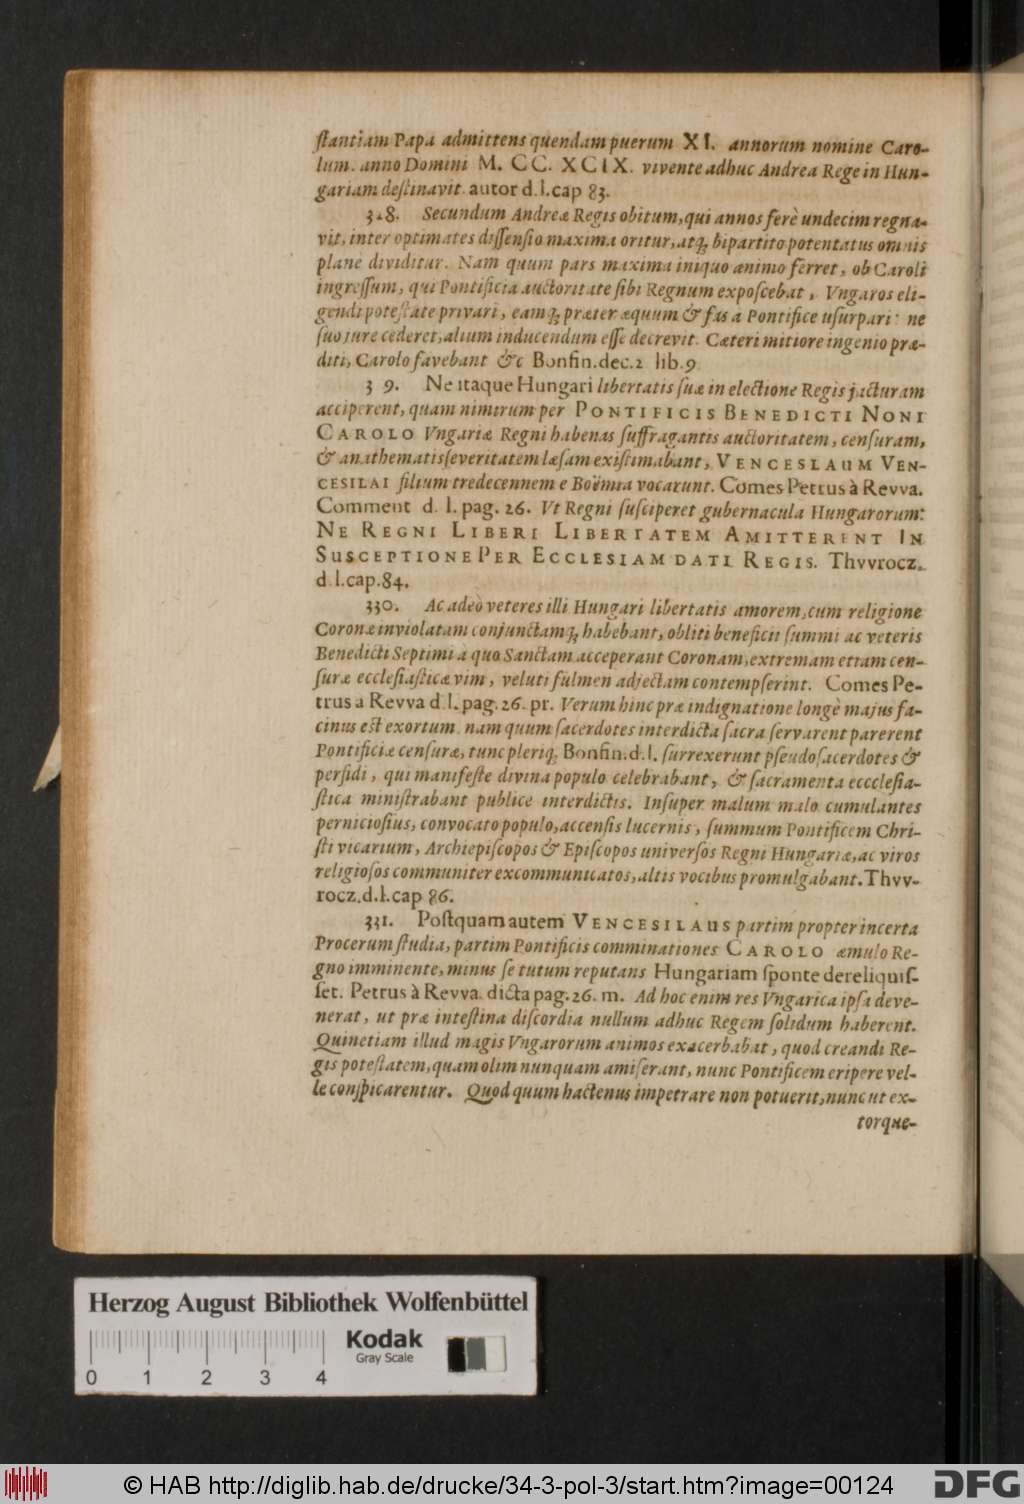 ſtantiam Papa admittens quendam puerum XI. annorum nomine Caro-
lum. anno Domini M. CC. XCIX. vivente adhuc Andrea Rege in Hun-
gariam deſtinavit. autor d.l.cap 83.
328. Secundum Andreæ Regis obitum, qui annos ferè undecim regna-
vit, inter optimates diſſenſio maxima oritur, atq; bipartito potentatus omnis
plane dividitur. Nam quum pars maxima iniquo animo ferret, ob Caroli
ingreſſum, qui Pontificia auctoritate ſibi Regnum expoſcebat, Vngaros eli-
gendi poteſtate privari, eamq; præter æquum & fas a Pontifice uſurpari: ne
ſuo jure cederet, alium inducendum eſſe decrevit. Cæteri mitiore ingenio præ-
diti, Carolo favebant &c Bonfin.dec.2 lib.9
3 9. Ne itaque Hungari libertatis ſuæ in electione Regis jacturam
acciperent, quam nimirum per PONTIFICIS BENEDICTI NONI
CAROLO Vngariæ Regni habenas ſuffragantis auctoritatem, cenſuram,
& anathematis ſeveritatem læſam exiſtimabant, VENCESLAUM VEN-
CESILAI filium tredecennem e Boëmia vocarunt. Comes Petrus à Revva.
Comment d. l. pag. 26. Vt Regni ſuſciperet gubernacula Hungarorum:
NE REGNI LIBERI LIBERTATEM AMITTERENT IN
SUSCEPTIONE PER ECCLESIAM DATI REGIS. Thvvrocz.
d.l.cap.84.
330. Ac adeò veteres illi Hungari libertatis amorem, cum religione
Coronæ inviolatam conjunctamq; habebant, obliti beneficii ſummi ac veteris
Benedicti Septimi à quo Sanctam acceperant Coronam, extremam etiam cen-
ſuræ eccleſiaſticæ vim, veluti fulmen adjectam contempſerint. Comes Pe-
trus a Revva d.l. pag.26. pr. Verum hinc præ indignatione longè majus fa-
cinus eſt exortum. nam quum ſacerdotes interdicta ſacra ſervarent parerent
Pontificiæ cenſuræ, tunc pleriq; Bonfin.d.l. ſurrexerunt pſeudoſacerdotes &
perfidi, qui manifeſte divina populo celebrabant, & ſacramenta ecccleſia-
ſtica miniſtrabant publice interdictis. Inſuper malum malo cumulantes
pernicioſius, convocato populo, accenſis lucernis, ſummum Pontificem Chri-
ſti vicarium, Archiepiſcopos & Epiſcopos univerſos Regni Hungariæ, ac viros
religioſos communiter excommunicatos, altis vocibus promulgabant. Thvv-
rocz.d.l.cap 86.
331. Poſtquam autem VENCESILAUS partim propter incerta
Procerum ſtudia, partim Pontificis comminationes CAROLO æmulo Re-
gno imminente, minus ſe tutum reputans Hungariam ſponte dereliquiſ-
ſet. Petrus à Revva. dicta pag.26. m. Ad hoc enim res Vngarica ipſa deve-
nerat, ut præ inteſtina diſcordia nullum adhuc Regem ſolidum haberent.
Quinetiam illud magis Vngarorum animos exacerbabat, quod creandi Re-
gis poteſtatem, quam olim nunquam amiſerant, nunc Pontificem eripere vel-
le conſpicarentur. Quod quum hactenus impetrare non potuerit, nunc ut ex-
torque-
Herzog August Bibliothek Wolfenbüttel
Kodak
Gray Scale
0 1 2 3 4
© HAB http://diglib.hab.de/drucke/34-3-pol-3/start.htm?image=00124
DFG